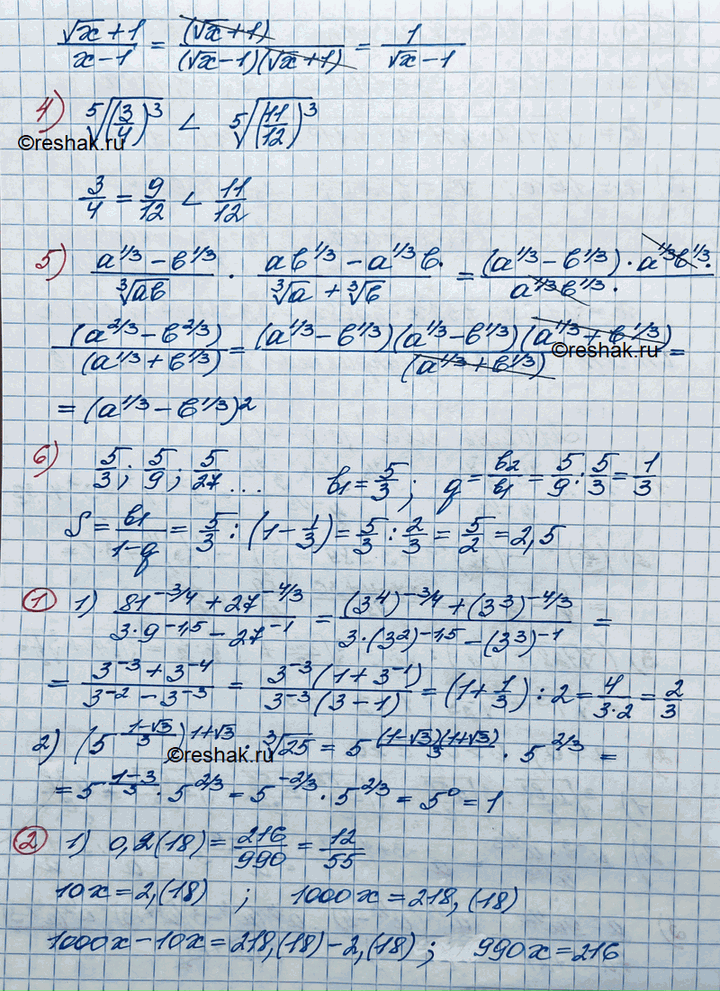 (√x+1)/(x-1) = (√x+1)/((√x-1)(√x+1)) = 1/(√x-1)
4) ⁵√((3/4)³) < ⁵√((11/12)³)
©reshak.ru
3/4 = 9/12 < 11/12
5) (a^(1/3) - в^(1/3))/∛(aв) · (aв^(1/3) - a^(1/3)в)/(∛a + ∛в) = ((a^(1/3) - в^(1/3)) · a^(1/3)в^(1/3) ·)/(a^(1/3)в^(1/3) ·
(a^(2/3) - в^(2/3))/(a^(1/3) + в^(1/3)) = ((a^(1/3) - в^(1/3))(a^(1/3) - в^(1/3))(a^(1/3) + в^(1/3)))/(a^(1/3) + в^(1/3)) =
©reshak.ru
= (a^(1/3) - в^(1/3))²
6) 5/3; 5/9; 5/27 ... в1 = 5/3; q = в2/в1 = 5/9 : 5/3 = 1/3
S = в1/(1-q) = 5/3 : (1 - 1/3) = 5/3 : 2/3 = 5/2 = 2,5
① 1) (81^(-3/4) + 27^(-4/3))/(3·9^(-1,5) - 27^(-1)) = ((3⁴)^(-3/4) + (3³)^(-4/3))/(3·(3²)^(-1,5) - (3³)^(-1)) =
= (3^(-3) + 3^(-4))/(3^(-2) - 3^(-3)) = (3^(-3)(1 + 3^(-1)))/(3^(-3)(3-1)) = (1 + 1/3) : 2 = 4/(3·2) = 2/3
2) (5^((1-√3)/3))^(1+√3) · ∛25 = 5^((1-√3)(1+√3)/3) · 5^(2/3) =
©reshak.ru
= 5^((1-3)/3) · 5^(2/3) = 5^(-2/3) · 5^(2/3) = 5⁰ = 1
② 1) 0,2(18) = 216/990 = 12/55
10x = 2,(18) ; 1000x = 218,(18)
1000x - 10x = 218,(18) - 2,(18) ; 990x = 216